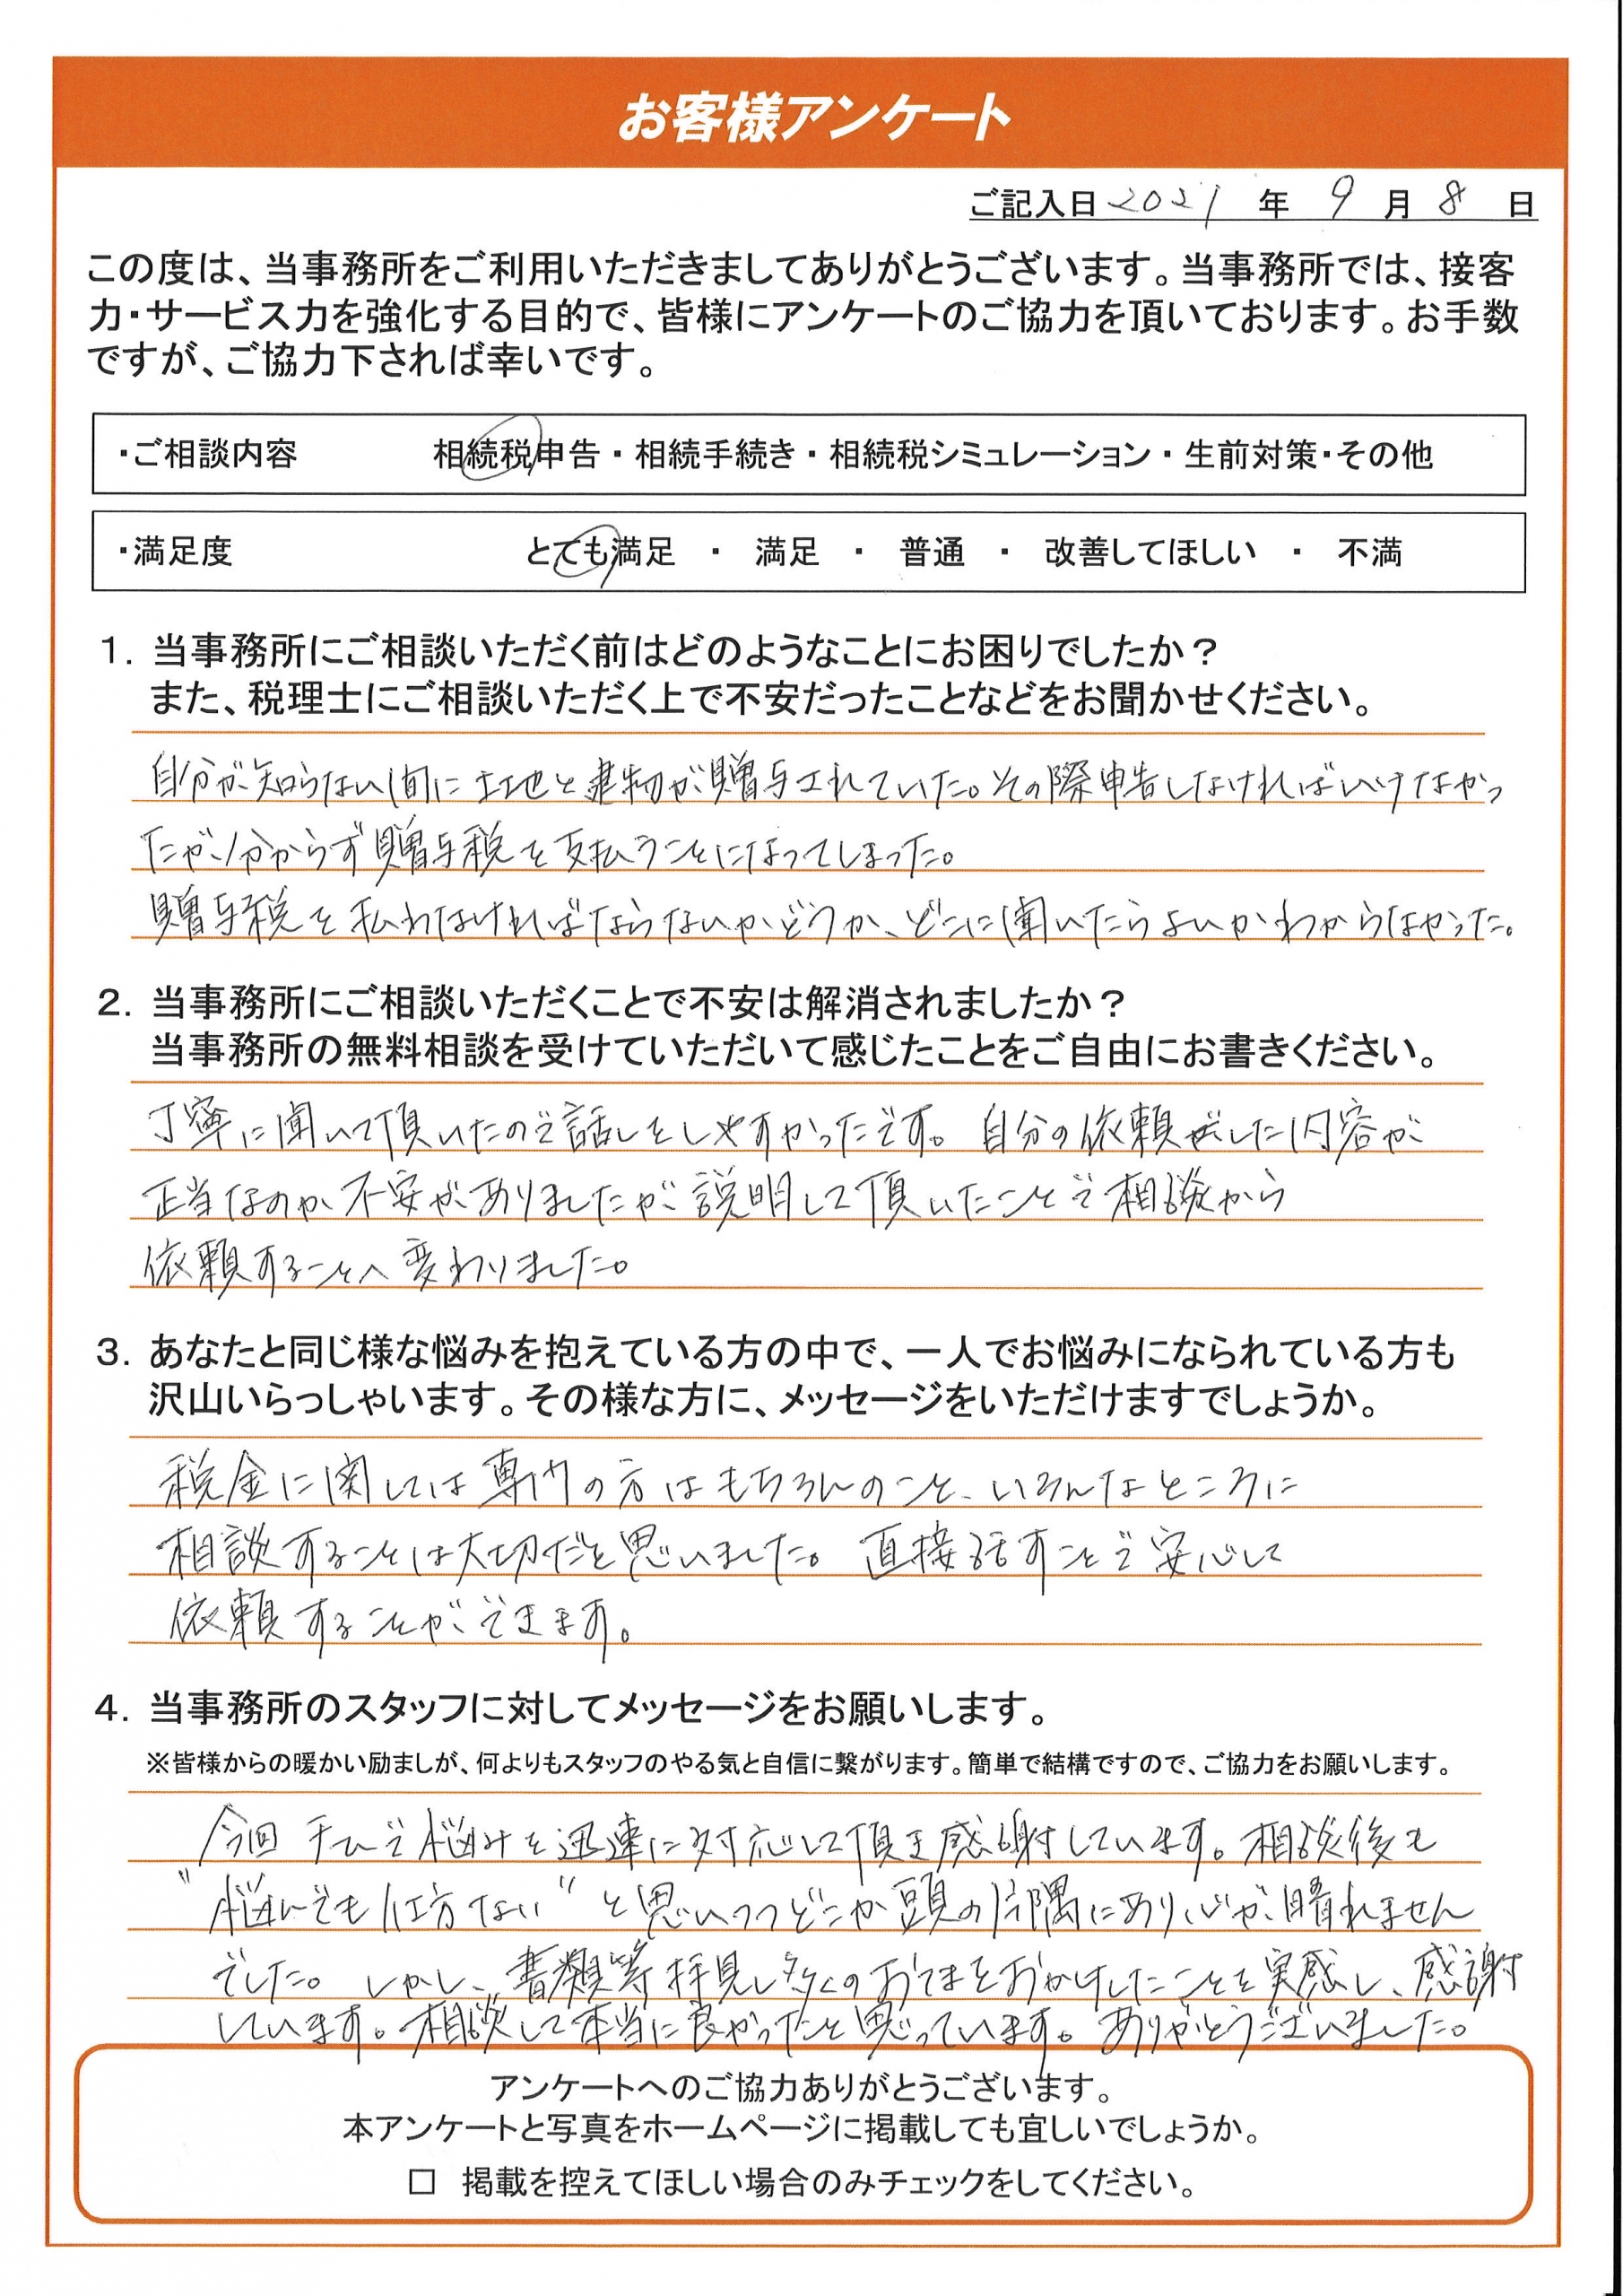 お客様アンケート
ご記入日 2021 年 9 月 8 日
この度は、当事務所をご利用いただきましてありがとうございます。当事務所では、接客
力・サービス力を強化する目的で、皆様にアンケートのご協力を頂いております。お手数
ですが、ご協力下されば幸いです。
・ご相談内容 相続税申告・相続手続き・相続税シミュレーション・生前対策・その他
・満足度 とても満足 ・ 満足 ・ 普通 ・ 改善してほしい ・ 不満
1. 当事務所にご相談いただく前はどのようなことにお困りでしたか？
また、税理士にご相談いただく上で不安だったことなどをお聞かせください。
自分が知らない間に土地と建物が贈与されていた。その際申告しなければいけなかっ
たが、分からず贈与税を支払うことになってしまった。
贈与税を払わなければならないかどうか、どこに聞いたらよいかわからなかった。
2. 当事務所にご相談いただくことで不安は解消されましたか？
当事務所の無料相談を受けていただいて感じたことをご自由にお書きください。
丁寧に聞いて頂いたので話しをしやすかったです。自分の依頼した内容が
正当なのか不安がありましたが説明して頂いたことで相談から
依頼することへ変わりました。
3. あなたと同じ様な悩みを抱えている方の中で、一人でお悩みになられている方も
沢山いらっしゃいます。その様な方に、メッセージをいただけますでしょうか。
税金に関しては専門の方はもちろんのこと、いろんなところに
相談することは大切だと思いました。直接話すことで安心して
依頼することができます。
4. 当事務所のスタッフに対してメッセージをお願いします。
※皆様からの暖かい励ましが、何よりもスタッフのやる気と自信に繋がります。簡単で結構ですので、ご協力をお願いします。
今回 悩みを迅速に対応して頂き感謝しています。相談後も
"悩んでも仕方ない"と思いつつどこか頭の片隅にあり、心が晴れません
でした。しかし、書類等拝見し多くのおてまをおかけしたことを実感し、感謝
しています。相談して本当に良かったと思っています。ありがとうございました。
アンケートへのご協力ありがとうございます。
本アンケートと写真をホームページに掲載しても宜しいでしょうか。
□ 掲載を控えてほしい場合のみチェックをしてください。